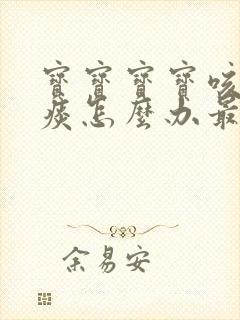 寶寶寶寶咳
痰怎麼办最
余易安